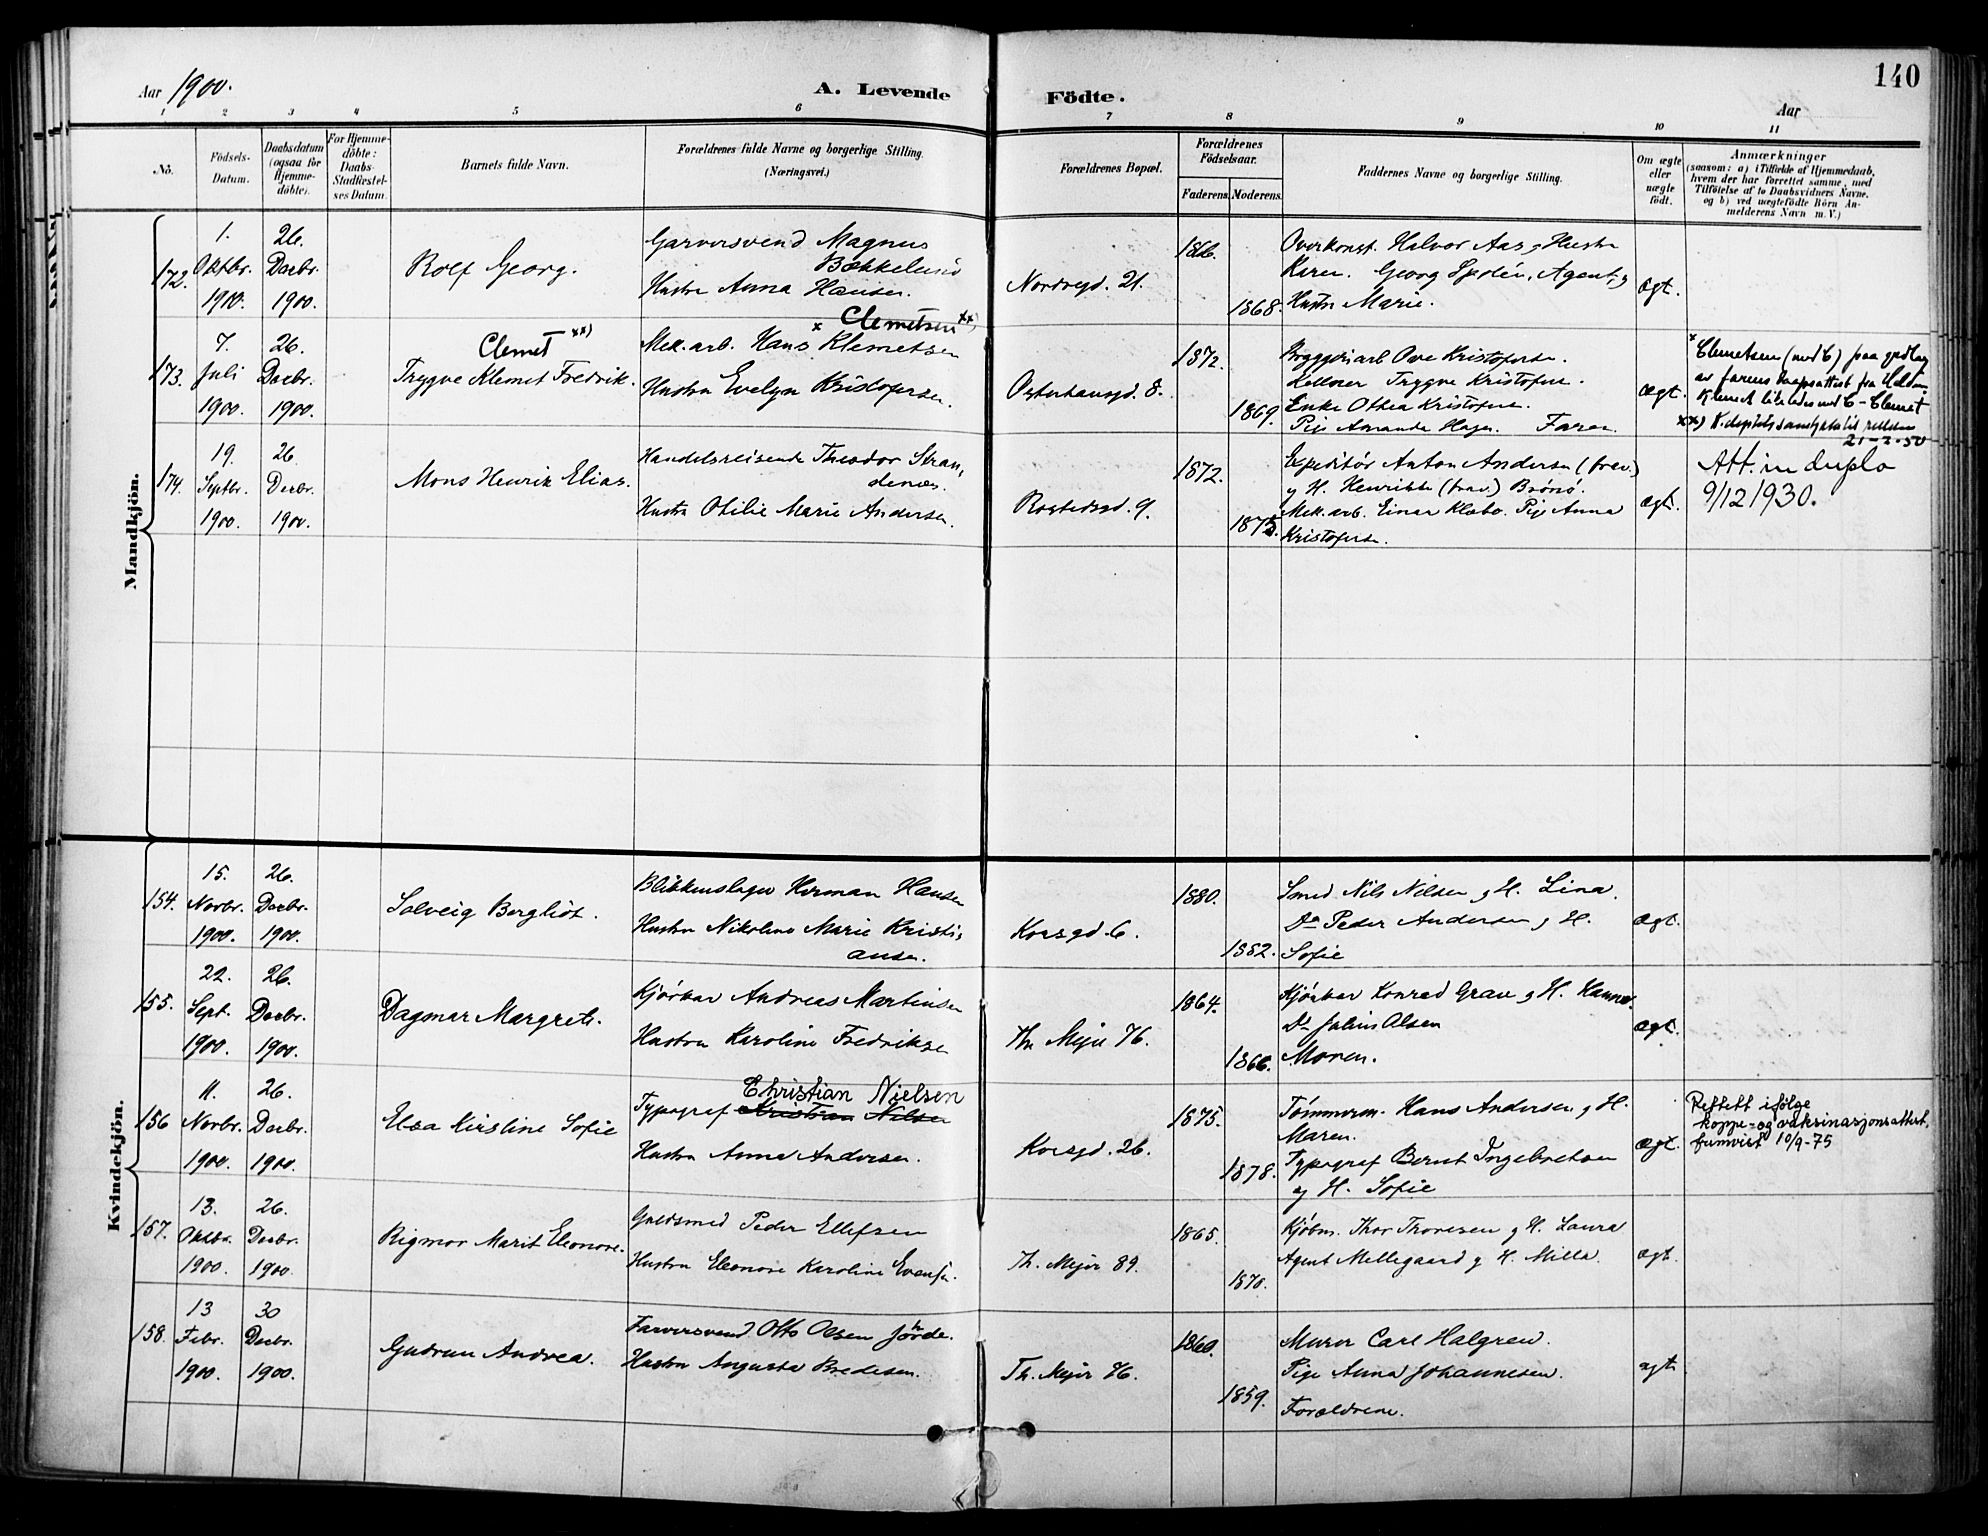 140
Aar 1900.
A. Levende Födte.
Aar
1 2 3 4 5 6 7 8 9 10 11
No.
Födsels-
Datum.
Daabsdatum
(ogsaa for
Hjemme-
döbte).
For Hjemme-
döbte:
Daabs-
Stadfæstel-
ses Datum.
Barnets fulde Navn.
Forældrenes fulde Navne og borgerlige Stilling.
(Næringsvei.)
Forældrenes Bopæl.
Forældrenes
Födselsaar.
Faderens. Moderens.
Faddernes Navne og borgerlige Stilling.
Om ægte
eller
uægte
födt.
Anmærkninger
(saasom: a) i Tilfælde af Hjemmedaab,
hvem der har forrettet samme, med
Tilföielse af to Daabsvidners Navne,
og b) ved uægtefödte Börn An-
melderens Navn m. V.)
Mandkjön.
172.
1.
Oktbr.
1900.
26.
Decbr.
1900.
Rolf Georg.
Garversvend Magnus
Bækkelund
Hustru Anna Hansen.
Nordregd. 21.
1866.
1868.
Overkonst. Halvor Aas og Hustru
Karen. Georg Agent, og
Hustru Marie.
Ægt.
173.
7.
Juli
1900.
26.
Decbr.
1900.
Clemet xx)
Trygve Klemet Fredrik.
Clemetsen xx)
Mek. arb. Hans x Klemetsen
Hustru Evelyn Kristofersen.
Osterhausgd. 8.
1872.
1869.
Bryggeriarb Ove Kristofersen.
Kellner Trygve Kristofersen.
Enke Othea Kristofersen.
Pige Amanda Hagen. Faren.
Ægt.
x Clemetsen (med C) paa grdlag
av farens daapsattest fra
Klemet likeledes med C - Clemet
xx)
21-2-50
174.
19.
Septbr.
1900.
26.
Decbr.
1900.
Mons Henrik Elias.
Handelsreisende Theodor Stran-
denæs.
Hustru Otilie Marie Andersen.
Rostedsgd. 9.
1872.
1875.
Expeditör Anton Andersen (frav.)
og H. Henrikke (frav.) Brönö.
Mek. arb. Einar Klæbo. Pige Anna
Kristofersen.
Ægt.
Att. in duplo
9/12/1930.
Kvindekjön.
154.
15.
Novbr.
1900.
26.
Decbr.
1900.
Solveig Bergliot.
Blikkenslager Herman Hansen
Hustru Nikoline Marie Kristi-
ansen.
Korsgd. 6.
1880.
1882.
Smed Nils Nilsen og H. Lina.
Do Peder Andersen og H.
Sofie
Ægt.
155.
22.
Sept.
1900.
26.
Decbr.
1900.
Dagmar Margrete.
Kjörer Andreas Martinsen
Hustru Karoline Fredriksen
Th. Mejer 76.
1864.
1866.
Kjörer Konrad Grav og H. Hanna.
Do Julius Olsen
Moren.
Ægt.
156
11.
Novbr.
1900.
26.
Decbr.
1900.
Elsa Kirstine Sofie
Christian Nielsen
Typograf Kristian Nilsen
Hustru Anna Andersen.
Korsgd. 26.
1875.
1878.
Tömmerm. Hans Andersen og H.
Maren.
Typograf Bernt Ingebretsen
og H. Sofie
Ægt.
Rettett ifölge
koppe- og vaksinasjonsattest.
fremvist 10/9-75
157.
13.
Oktbr.
1900.
26.
Decbr.
1900.
Rigmor Marit Eleonore.
Guldsmed Peder Ellefsen
Hustru Eleonore Karoline Evensen.
Th. Mejer 89.
1865.
1870.
Kjöbm. Thor Thoresen og H. Laura
Agent Mellegaard og H. Milla.
Ægt.
158.
13
Febr.
1900.
30
Decbr.
1900.
Gudrun Andrea.
Farversvend Otto Olsen Jörde.
Hustru Augusta Bredesen.
Th. Mejer 76.
1860.
1859.
Murer Carl Halgren.
Pige Anna Johannesen.
Forældrene.
ægt.